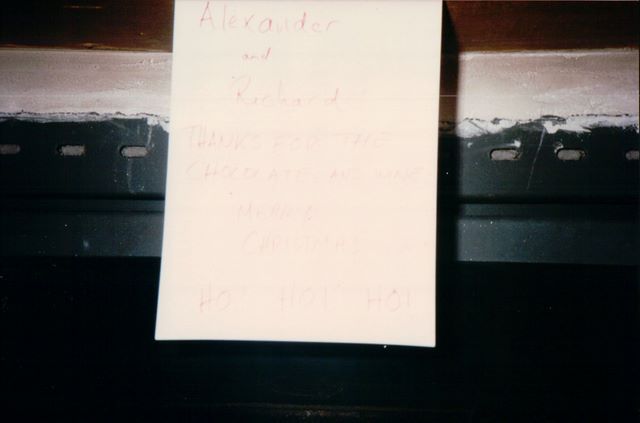 Alexander
and
Richard
THANKS FOR THE
CHOCOLATE AND WINE
MERRY
CHRISTMAS
HO! HO! HO!